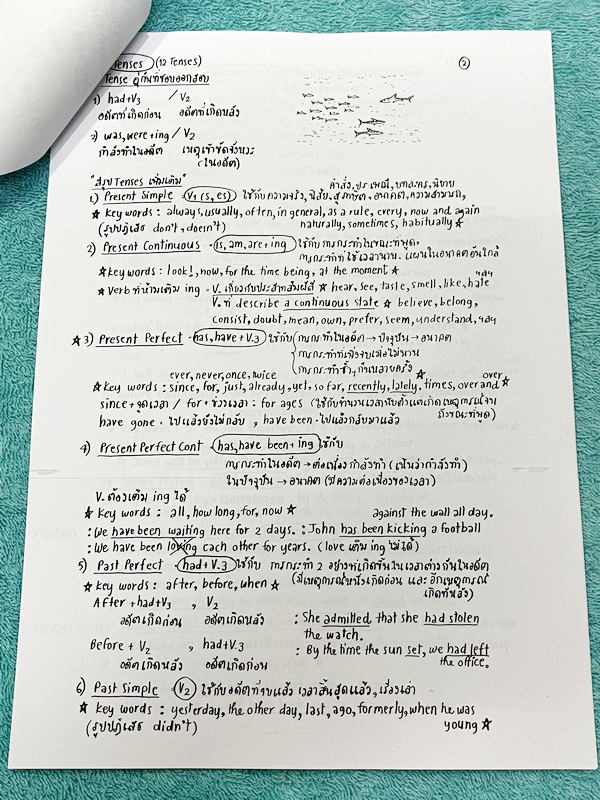 Tenses (12 Tenses)
②
Tense คู่กันที่ชอบออกสอบ
1) had+V3 / V2
อดีตที่เกิดก่อน อดีตที่เกิดหลัง
2) was, were+ing / V2
กำลังทำในอดีต เหตุเข้าขัดจังหวะ
(ในอดีต)
"สรุป Tenses เพิ่มเติม"
คำสั่ง, ประเพณี, บทละคร, นิยาย
1) Present Simple - V1 (s, es) ใช้กับความจริง, นิสัย, สุภาษิต, อนาคต, ความสามารถ,
★ Key words : always, usually, often, in general, as a rule, every, now and again
(รูปปฏิเสธ don't, doesn't) naturally, sometimes, habitually ★
2) Present Continuous - is, am, are + ing ใช้กับการกระทำในขณะที่พูด,
การกระทำที่ใช้เวลานาน, แผนในอนาคตอันใกล้
★ Key words : look!, now, for the time being, at the moment ★
★ Verb ที่ห้ามเติม ing - V. เกี่ยวกับประสาทสัมผัส ★ hear, see, taste, smell, like, hate ฯลฯ
V. ที่ describe a continuous state ★ believe, belong,
consist, doubt, mean, own, prefer, seem, understand, ฯลฯ
★ 3) Present Perfect - has, have + V.3 ใช้กับ การกระทำในอดีต → ปัจจุบัน → อนาคต
การกระทำที่เพิ่งจบเมื่อไม่นาน
การกระทำซ้ำๆ กันหลายครั้ง
ever, never, once, twice
★ Key words : since, for, just, already, yet, so far, recently, lately, times, over and over ★
since + จุดเวลา / for + ช่วงเวลา : for ages (ใช้กับจำนวนเวลานับตั้งแต่เกิดเหตุการณ์จน
ถึงขณะที่พูด)
have gone - ไปแล้วยังไม่กลับ , have been - ไปแล้วกลับมาแล้ว
4) Present Perfect Cont - has, have been + ing ใช้กับ
การกระทำในอดีต → ต่อเนื่องกำลังทำ (เน้นว่ากำลังทำ)
ในปัจจุบัน → อนาคต (มีความต่อเนื่องของเวลา)
V. ต้องเติม ing ได้
★ Key words : all, how long, for, now ★
against the wall all day.
: We have been waiting here for 2 days. : John has been kicking a football
: We have been loving each other for years. (love เติม ing ไม่ได้)
5) Past Perfect - had + V.3 ใช้กับ การกระทำ 2 อย่างที่เกิดขึ้นในเวลาต่างกันในอดีต
★ Key words : after, before, when ★ (มีเหตุการณ์หนึ่งเกิดก่อน และ อีกเหตุการณ์
เกิดทีหลัง)
After + had+V3 , V2
อดีตเกิดก่อน อดีตเกิดหลัง : She admitted that she had stolen
the watch.
Before + V2 , had+V.3 : By the time the sun set, we had left
อดีตเกิดหลัง อดีตเกิดก่อน the office.
6) Past Simple - V2 ใช้กับอดีตที่จบแล้ว เวลาสิ้นสุดแล้ว, เรื่องเล่า
★ Key words : yesterday, the other day, last, ago, formerly, when he was
(รูปปฏิเสธ didn't) young ★